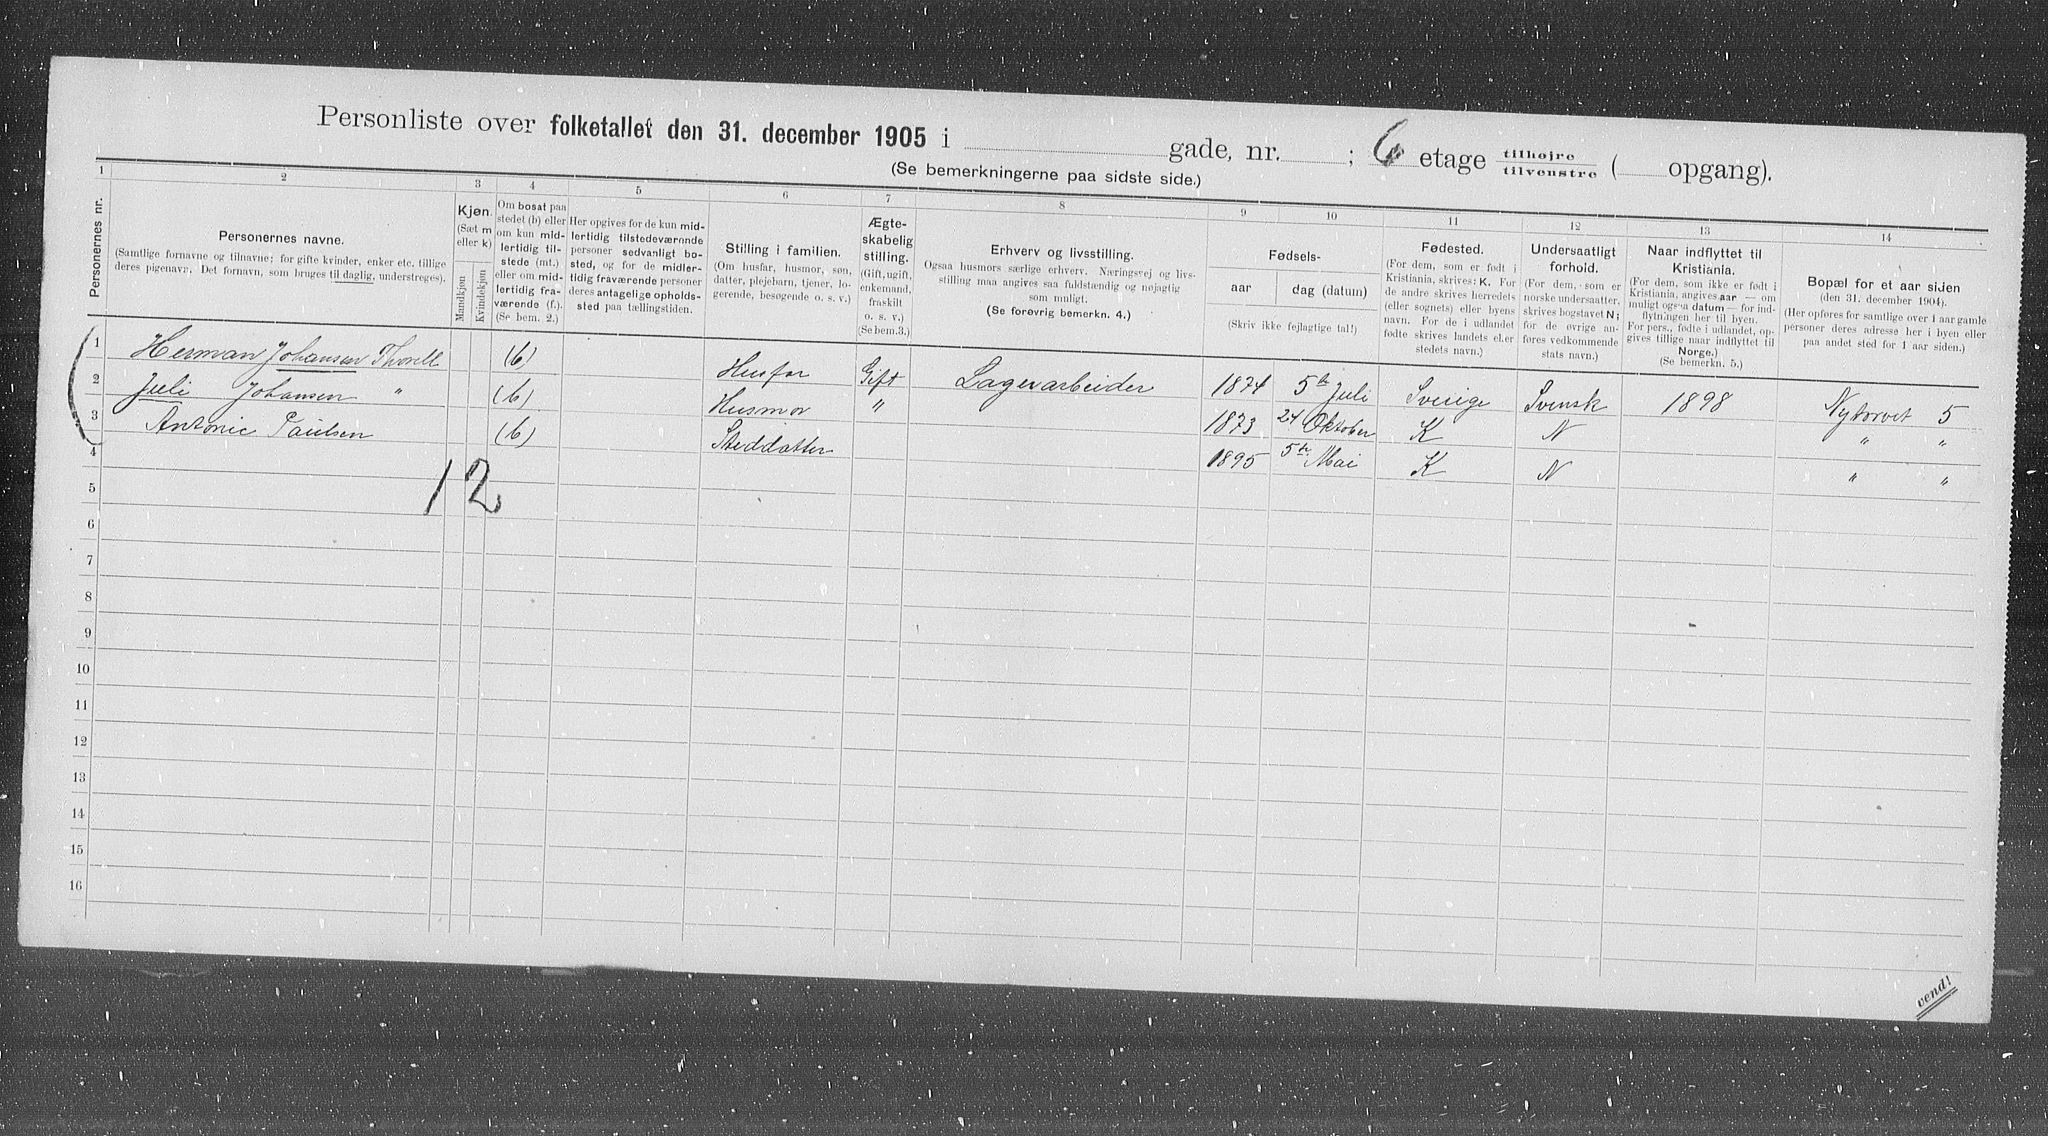 Personliste over folketallet den 31. december 1905 i gade, nr. ; 6 etage tilhøjre tilvenstre ( opgang).
(Se bemerkningerne paa sidste side.)
1 2 3 4 5 6 7 8 9 10 11 12 13 14
Personernes nr.
Personernes navne.
(Samtlige fornavne og tilnavne; for gifte kvinder, enker etc. tillige
deres pigenavr. Det fornavn, som bruges til daglig, understreges).
Kjøn.
(Sæt m
eller k)
Mandkjøn
Kvindekjøn
Om bosat paa
stedet (b) eller
om kun mid-
lertidig til-
stede (mt.)
eller om mid-
lertidig fra-
værende (f.).
(Se bem. 2.)
Her opgives for de kun mid-
lertidig tilstedeværende
personer sedvanligt bo-
sted, og for de midler-
tidig fraværende personer
deres antagelige opholds-
sted paa tællingstiden.
Stilling i familien.
(Om husfar, husmor, søn,
datter, plejebarn, tjener, lo-
gerende, besøgende o. s. v.)
Ægte-
skabelig
stilling.
(Gift, ugift,
enkemand,
fraskilt
o. s. v.)
(Se bem.3.)
Erhverv og livsstilling.
Ogsaa husmors særlige erhverv. Næringsvej og livs-
stilling maa angives saa fuldstændig og nøjagtig
som muligt.
(Se forøvrig bemerkn. 4.)
Fødsels-
aar dag (datum)
(Skriv ikke fejlagtige tal!)
Fødested.
(For dem, som er født i
Kristiania, skrives: K. For
de andre skrives herredets
(eller sognets) eller byens
navn. For de i udlandet
fødte skrives landets el.er
stedets navn.)
Undersaatligt
forhold.
(For dem, som er
norske undersaatter,
skrives bogstavet N;
for de øvrige an-
føres vedkommende
stats navn.)
Naar indflyttet til
Kristiania.
(For dem, som ikke er født i
Kristiania, angives aar — om
muligt ogsaa datum — for ind-
flytningen her til byen.
For pers., fødte i udlandet, op-
gives tillige naar indflyttet til
Norge.)
(Se bemerkn. 5.)
Bopæl for et aar siden
(den 31. december 1904).
(Her opføres for samtlige over 1 aar gamle
personer deres adresse her i byen eller
paa andet sted for 1 aar siden.)
1 Herman Johansen Thorell (b) Husfar Gift Lagerarbeider 1874 5te Juli Sverige Svensk 1898 Nytorvet 5
2 Juli Johansen " (b) Husmor " 1873 24 Oktober K N " "
3 Antonie Paulsen (b) Steddatter 1895 5te Mai K N " "
4
12
5
6
7
8
9
10
11
12
13
14
15
16
vend!